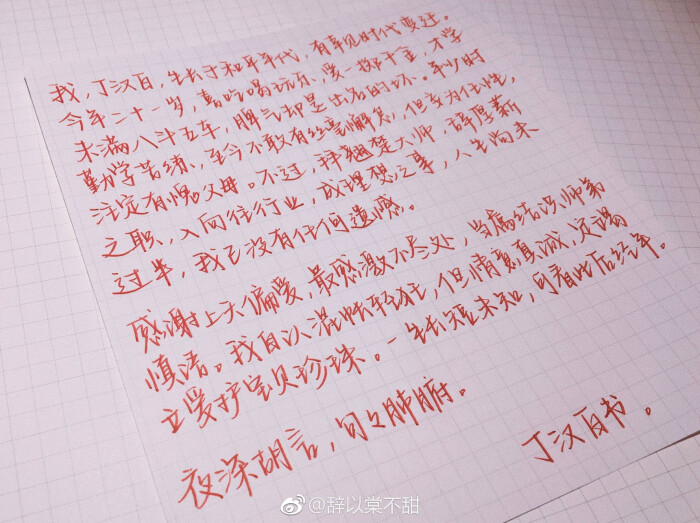 我，丁汉白，生长于和平年代，有幸见时代变迁。
今年二十一岁，喜吃喝玩乐，爱一掷千金，才学
未满八斗五车，脾气却是出名的坏。年少时
勤学苦练，至今不敢有丝毫懈怠，但妄为任性，
注定有愧父母。不过，拜翘楚大师，辞厚薪
之职，入向往行业，成理想之事，人生尚未
过半，我已没有任何遗憾。
感谢上天偏爱，最感激不尽处，当属结识师弟
慎语。我自认混账轻狂，但情意真诚，定竭
立爱护宝贝珍珠。一生长短未知，可看此后经年。
夜深胡言，句句肺腑。
丁汉白书。
@辞以棠不甜